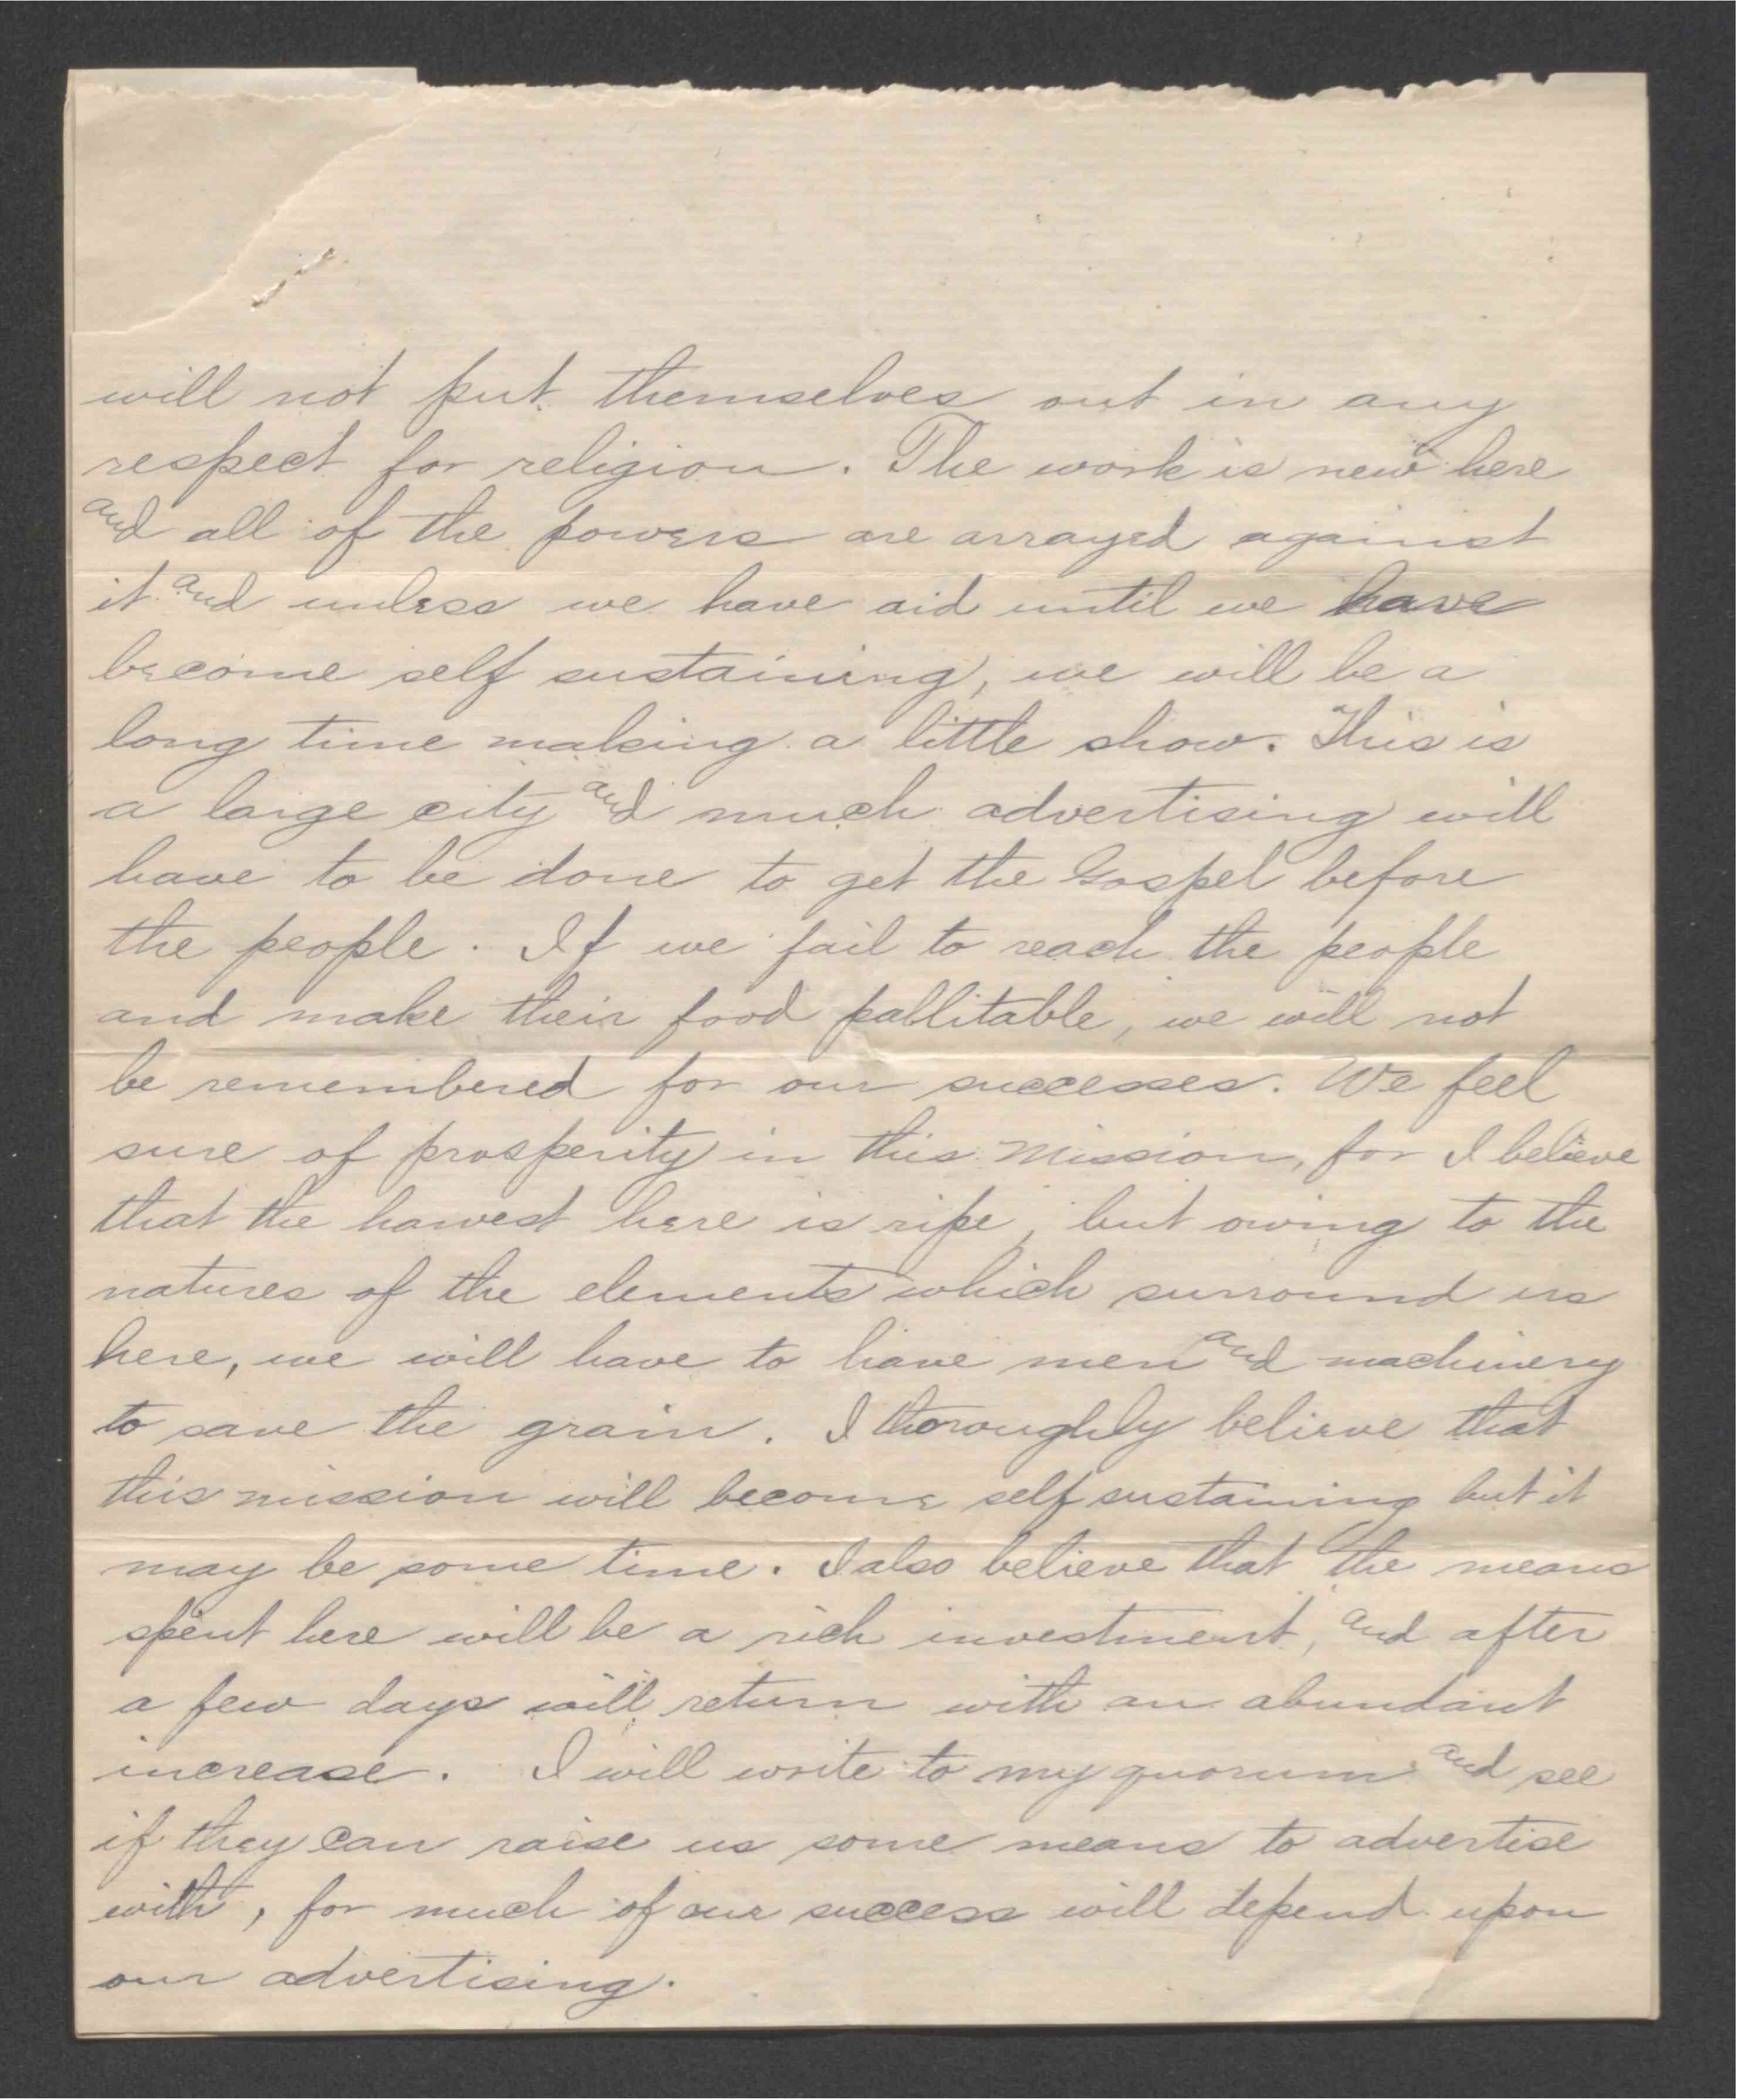 will not put themselves out in any
respect for religion. The work is new here
and all of the powers are arrayed against
it and unless we have aid until we have
become self sustaining, we will be a
long time making a little show. This is
a large city and much advertising will
have to be done to get the Gospel before
the people. If we fail to reach the people
and make their food pallitable, we will not
be remembered for our successes. We feel
sure of prosperity in this Mission, for I believe
that the harvest here is ripe, but owing to the
natures of the elements which surround us
here, we will have to have men and machinery
to save the grain. I thoroughly believe that
this mission will become self sustaining but it
may be some time. I also believe that the means
spent here will be a rich investment, and after
a few days will return with an abundant
increase. I will write to my quorum and see
if they can raise us some means to advertise
with, for much of our success will depend upon
our advertising.